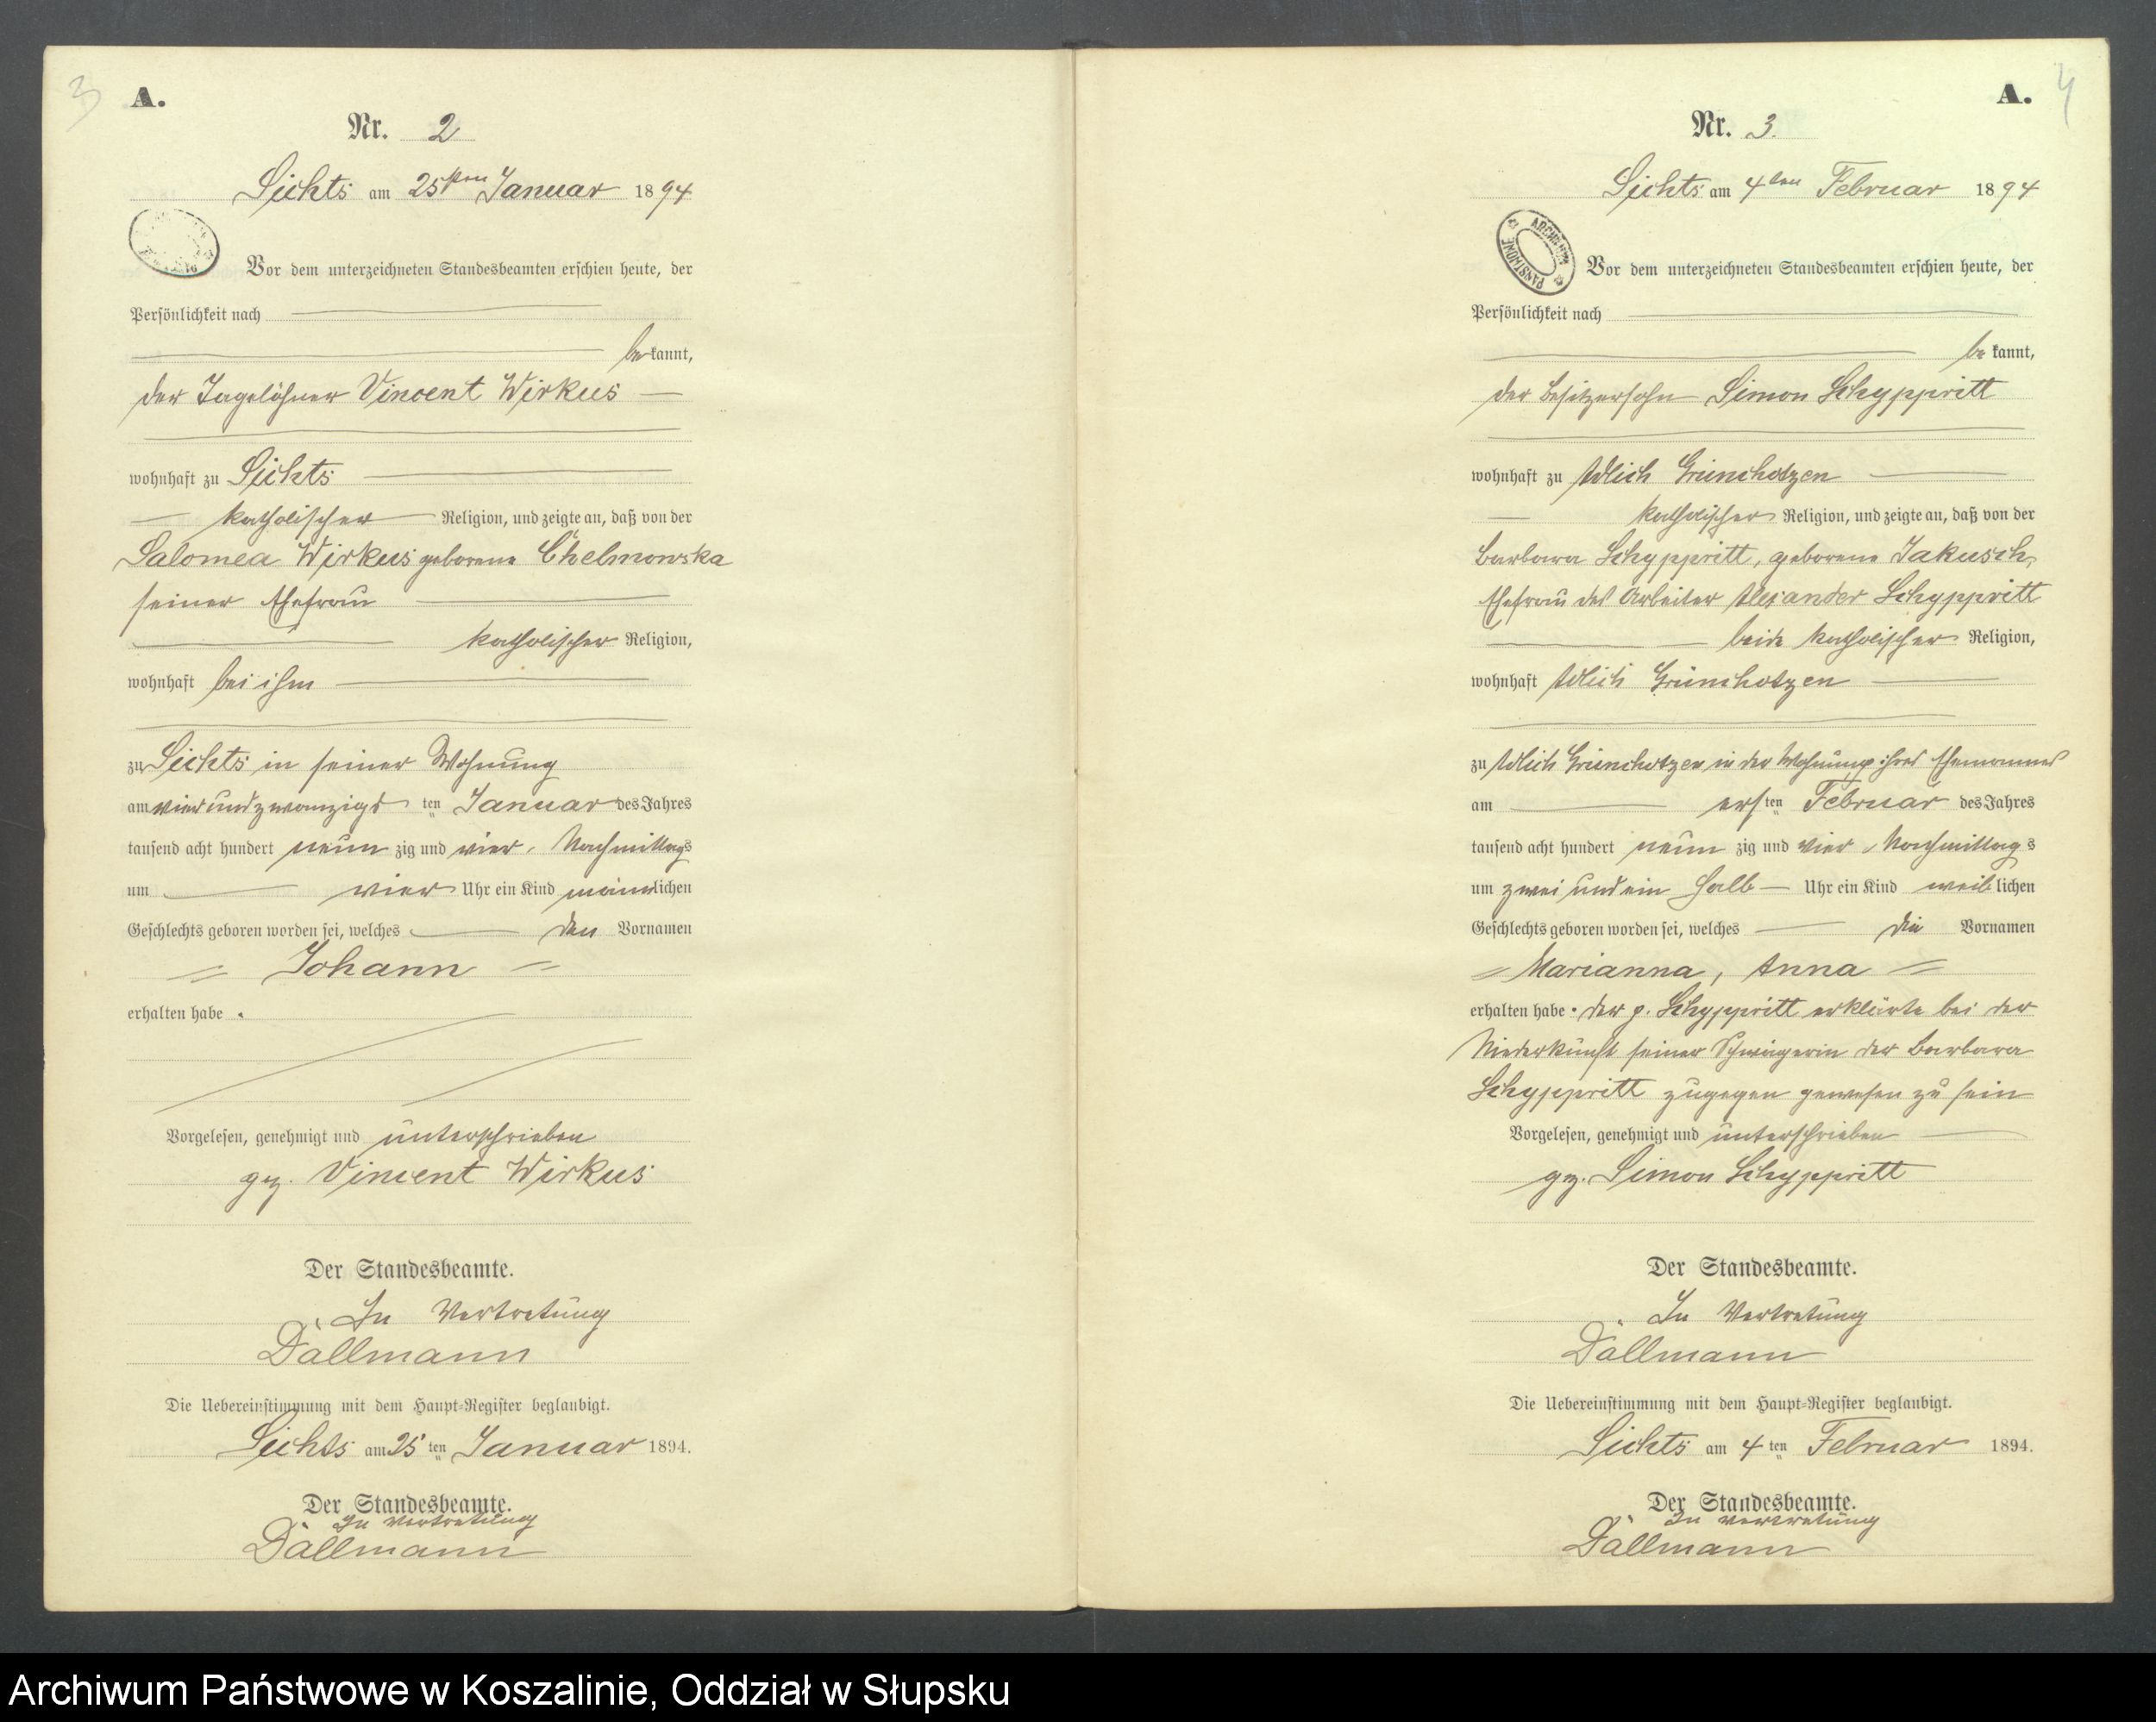 3
A.
Nr. 2
Lichts am 25ten Januar 1894
Vor dem unterzeichneten Standesbeamten erschien heute, der
Persönlichkeit nach
be kannt,
der Tagelöhner Vincent Wirkus
wohnhaft zu Lichts
katholischer Religion, und zeigte an, daß von der
Salomea Wirkus geborene Chelmowska
seiner Ehefrau
katholischer Religion,
wohnhaft bei ihm
zu Lichts in seiner Wohnung
am vierundzwanzigs ten Januar des Jahres
tausend acht hundert neun zig und vier, Nachmittags
um vier Uhr ein Kind männlichen
Geschlechts geboren worden sei, welches den Vornamen
Johann
erhalten habe.
Vorgelesen, genehmigt und unterschrieben
gez. Vincent Wirkus
Der Standesbeamte.
In Vertretung
Dallmann
Die Uebereinstimmung mit dem Haupt-Register beglaubigt.
Lichts am 25 ten Januar 1894.
Der Standesbeamte.
In Vertretung
Dallmann
4
A.
Nr. 3.
Lichts am 4ten Februar 1894
Vor dem unterzeichneten Standesbeamten erschien heute, der
Persönlichkeit nach
be kannt,
der Besitzersohn Simon Schyppritt
wohnhaft zu Adlich Grünchotzen
katholischer Religion, und zeigte an, daß von der
Barbara Schyppritt, geborene Jakusch,
Ehefrau des Arbeiter Alexander Schyppritt
beide katholischer Religion,
wohnhaft Adlich Grünchotzen
zu Adlich Grünchotzen in der Wohnung ihres Ehemannes
am ers ten Februar des Jahres
tausend acht hundert neun zig und vier, Nachmittags
um zwei und ein halb Uhr ein Kind weiblichen
Geschlechts geboren worden sei, welches die Vornamen
Marianna, Anna
erhalten habe. Der p. Schyppritt erklärte bei der
Niederkunft seiner Schwägerin der Barbara
Schyppritt zugegen gewesen zu sein
Vorgelesen, genehmigt und unterschrieben
gez. Simon Schyppritt
Der Standesbeamte.
In Vertretung
Dallmann
Die Uebereinstimmung mit dem Haupt-Register beglaubigt.
Lichts am 4 ten Februar 1894.
Der Standesbeamte.
In Vertretung
Dallmann
Archiwum Państwowe w Koszalinie, Oddział w Słupsku